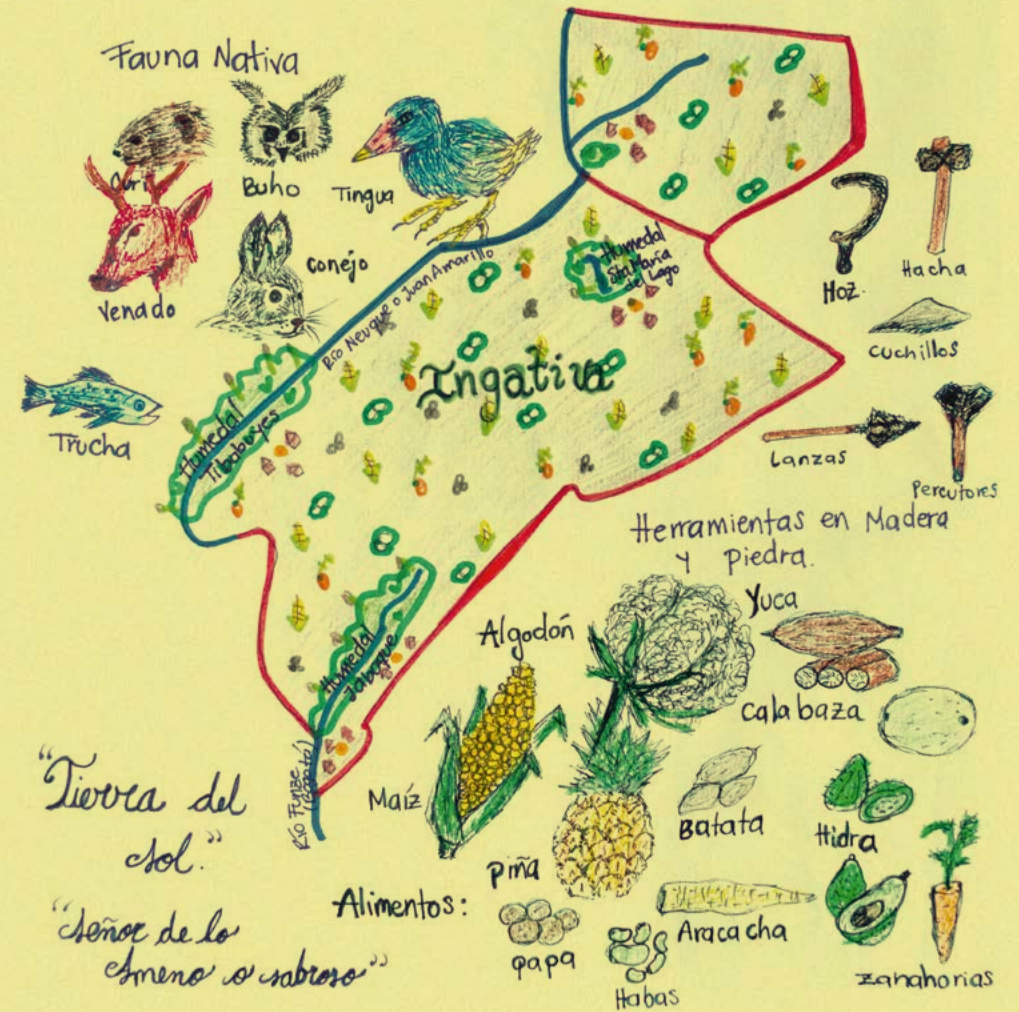 Fauna Nativa
Curí
Buho
Tingua
Venado
conejo
Trucha
Río Neuque o Juan Amarillo
Humedal
Sta Maria
del Lago
Ingativa
Humedal
Tibabuyes
Humedal
Jaboque
Río Funze
(Bogotá)
Hoz.
Hacha
cuchillos
Lanzas
Percutores
Herramientas en Madera
y piedra.
Algodón
Yuca
Calabaza
Maíz
Batata
Hidra
piña
Alimentos:
papa
Habas
Aracacha
zanahorias
"Tierra del
sol."
"señor de lo
Ameno o sabroso"